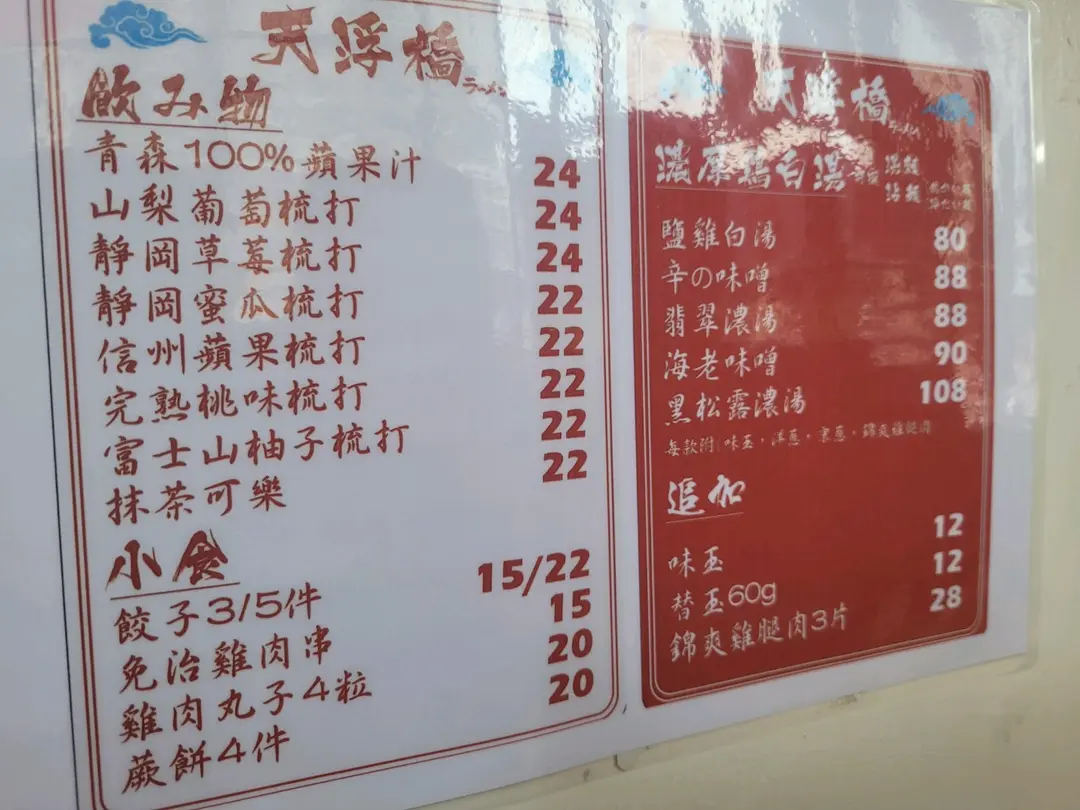 天浮橋
ラーメン
飲み物
青森100%蘋果汁 24
山梨葡萄梳打 24
靜岡草莓梳打 24
靜岡蜜瓜梳打 22
信州蘋果梳打 22
完熟桃味梳打 22
富士山柚子梳打 22
抹茶可樂 22
小食
餃子3/5件 15/22
免治雞肉串 15
雞肉丸子4粒 20
蕨餅4件 20
天浮橋
ラーメン
濃厚鶏白湯
鹽雞白湯 80
辛の味噌 88
翡翠濃湯 88
海老味噌 90
黑松露濃湯 108
每款附 味玉，洋蔥，京蔥，錦爽雞腿肉
追加
味玉 12
替玉60g 12
錦爽雞腿肉3片 28